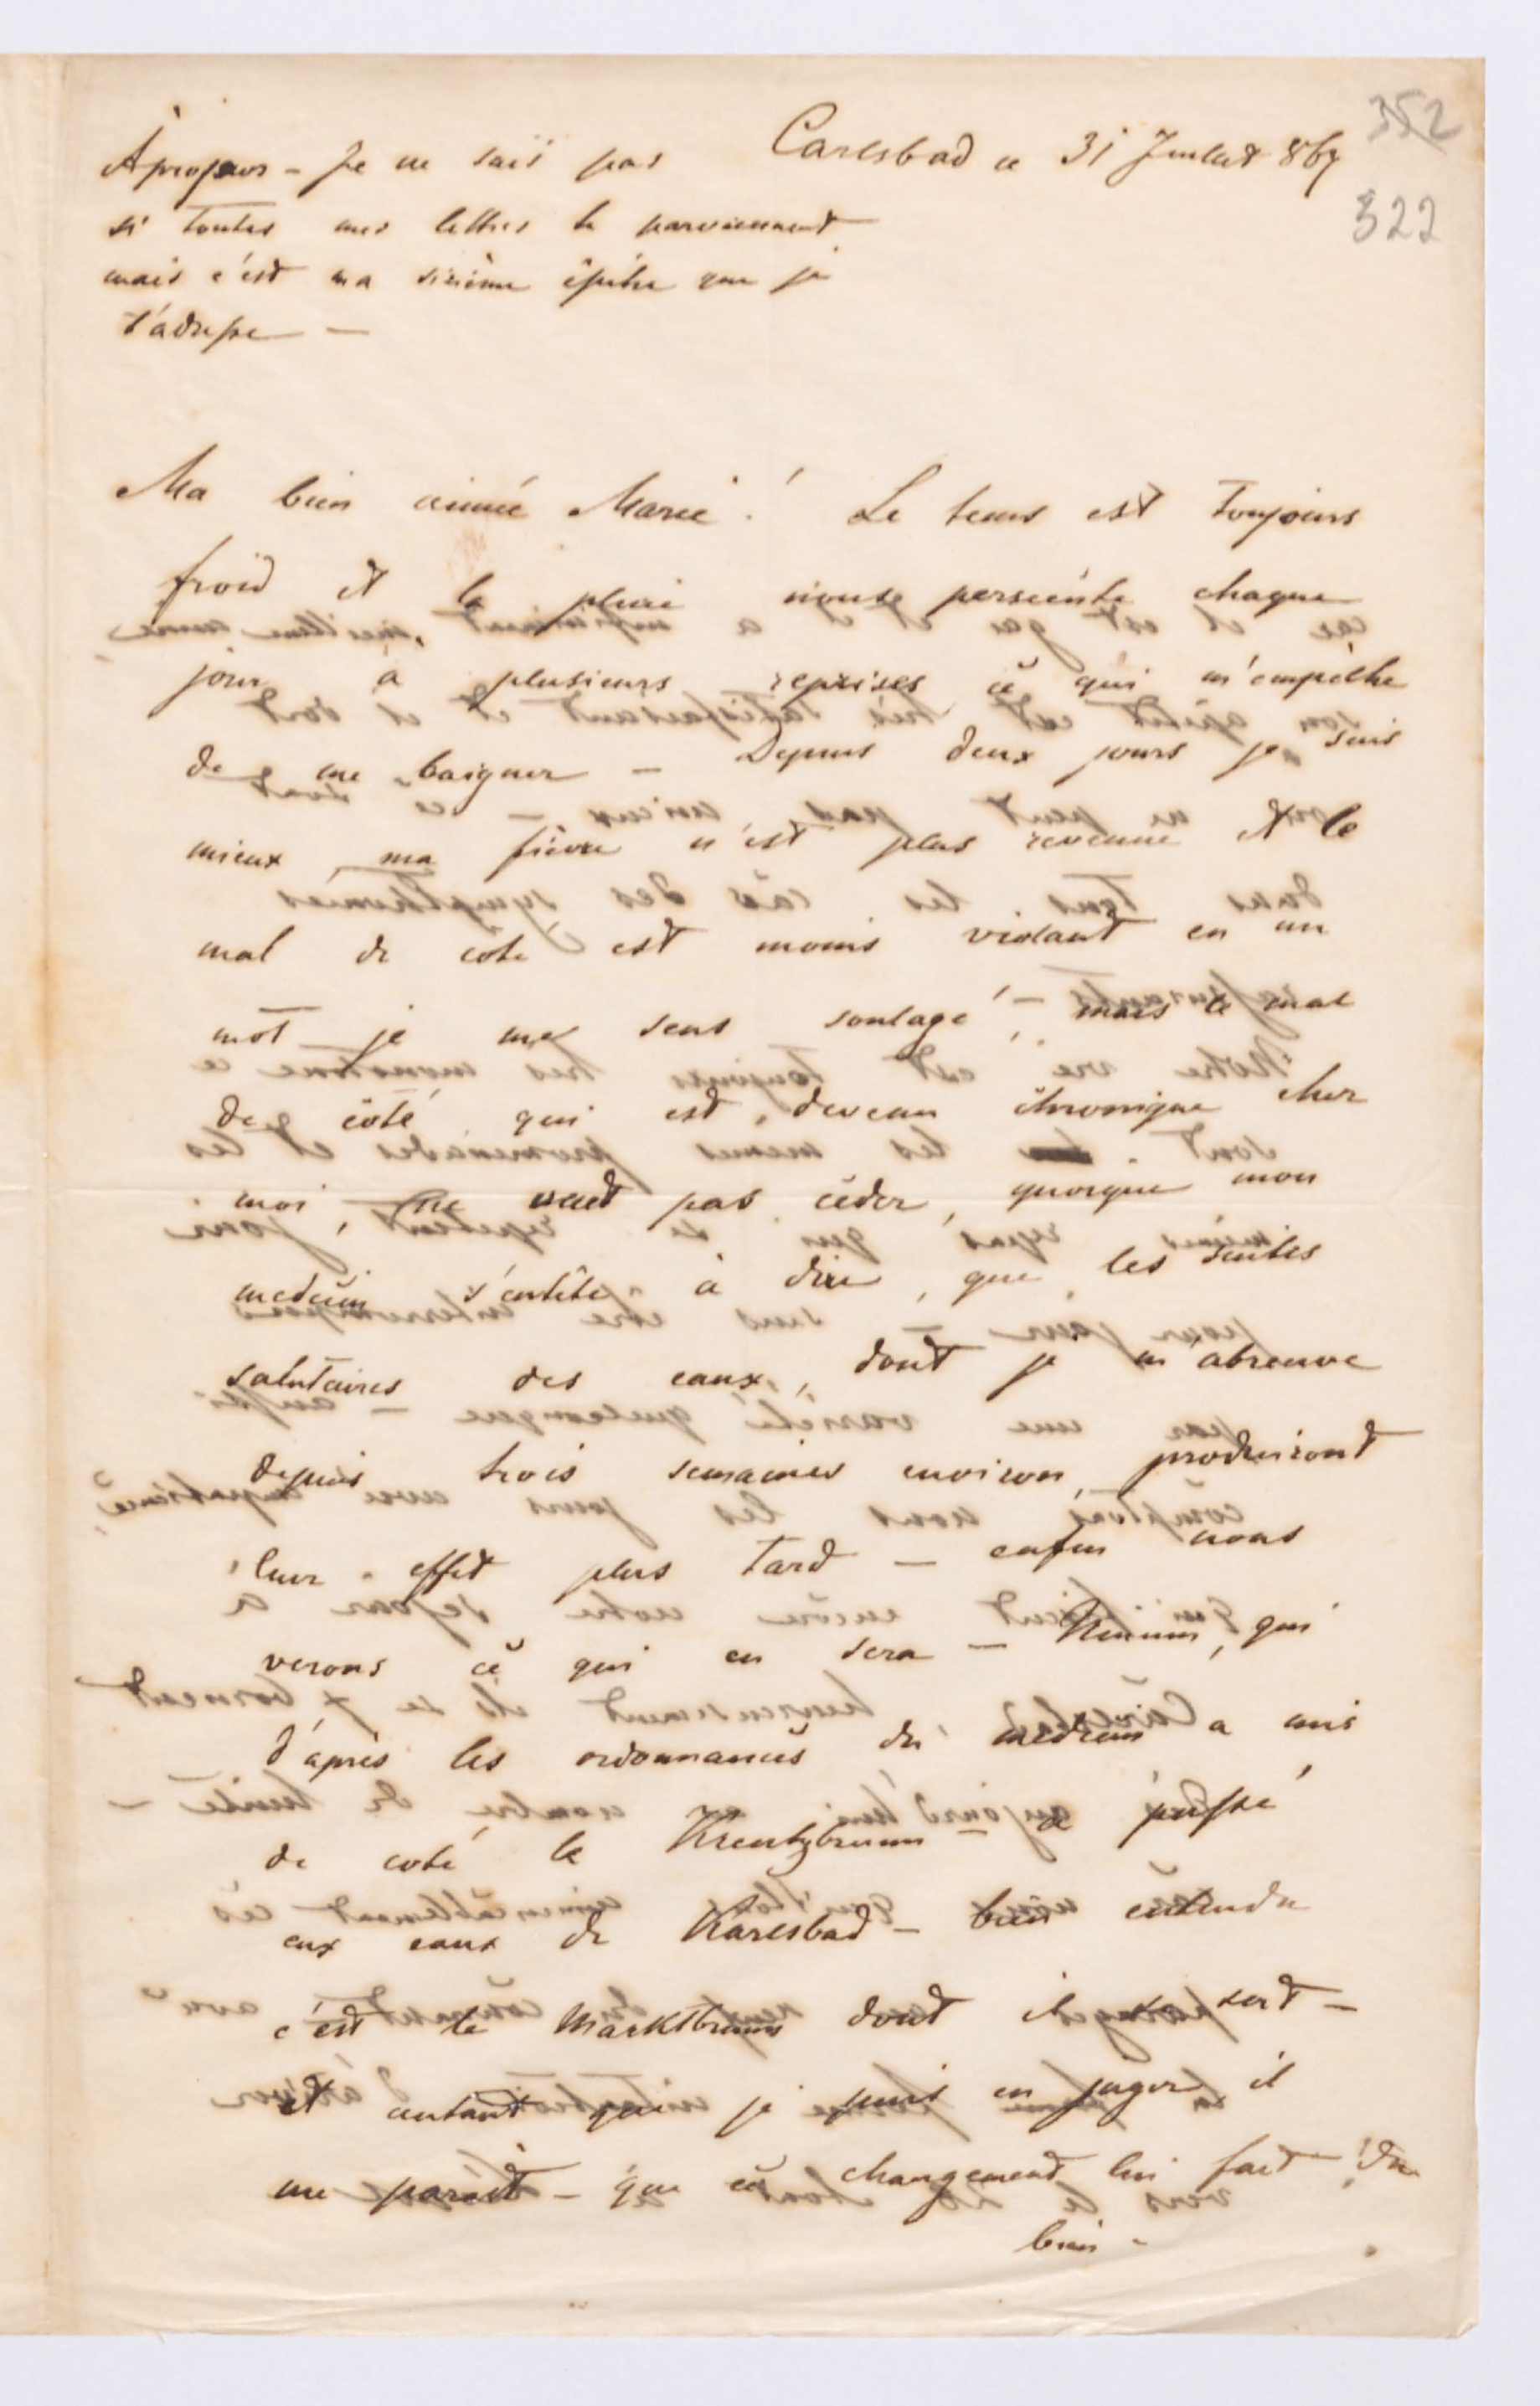 352
322
Carlsbad ce 31 Juillet 867
Apropos - Je ne sais pas
si toutes mes lettres te parviennent
mais c'est ma sixième épitre que je
t'adresse —
Ma bien aimée Marie ! Le tems est toujours
froid et la pluie nous persécute chaque
jour à plusieurs reprises ce qui m'empêche
de me baigner — Depuis deux jours je suis
mieux ma fièvre n'est plus revenue et le
mal de coté est moins violant en un
mot je me sens soulagé, mais le mal
de coté qui est devenu chronique chez
moi, ne veut pas céder, quoique mon
medecin s'entête à dire, que les suites
salutaires des eaux, dont je m'abreuve
depuis trois semaines environ, produiront
leur effet plus tard — enfin nous
verons ce qui en sera — qui
d'après les ordonnances du medecin a mis
de coté le Kreutzbrunn a passé
aux eaux de Karlsbad — bien entendu
c'est le Marktbrunn dont il se sert —
et autant que je puis en juger il
me parait — que ce changement lui fait du
bien -